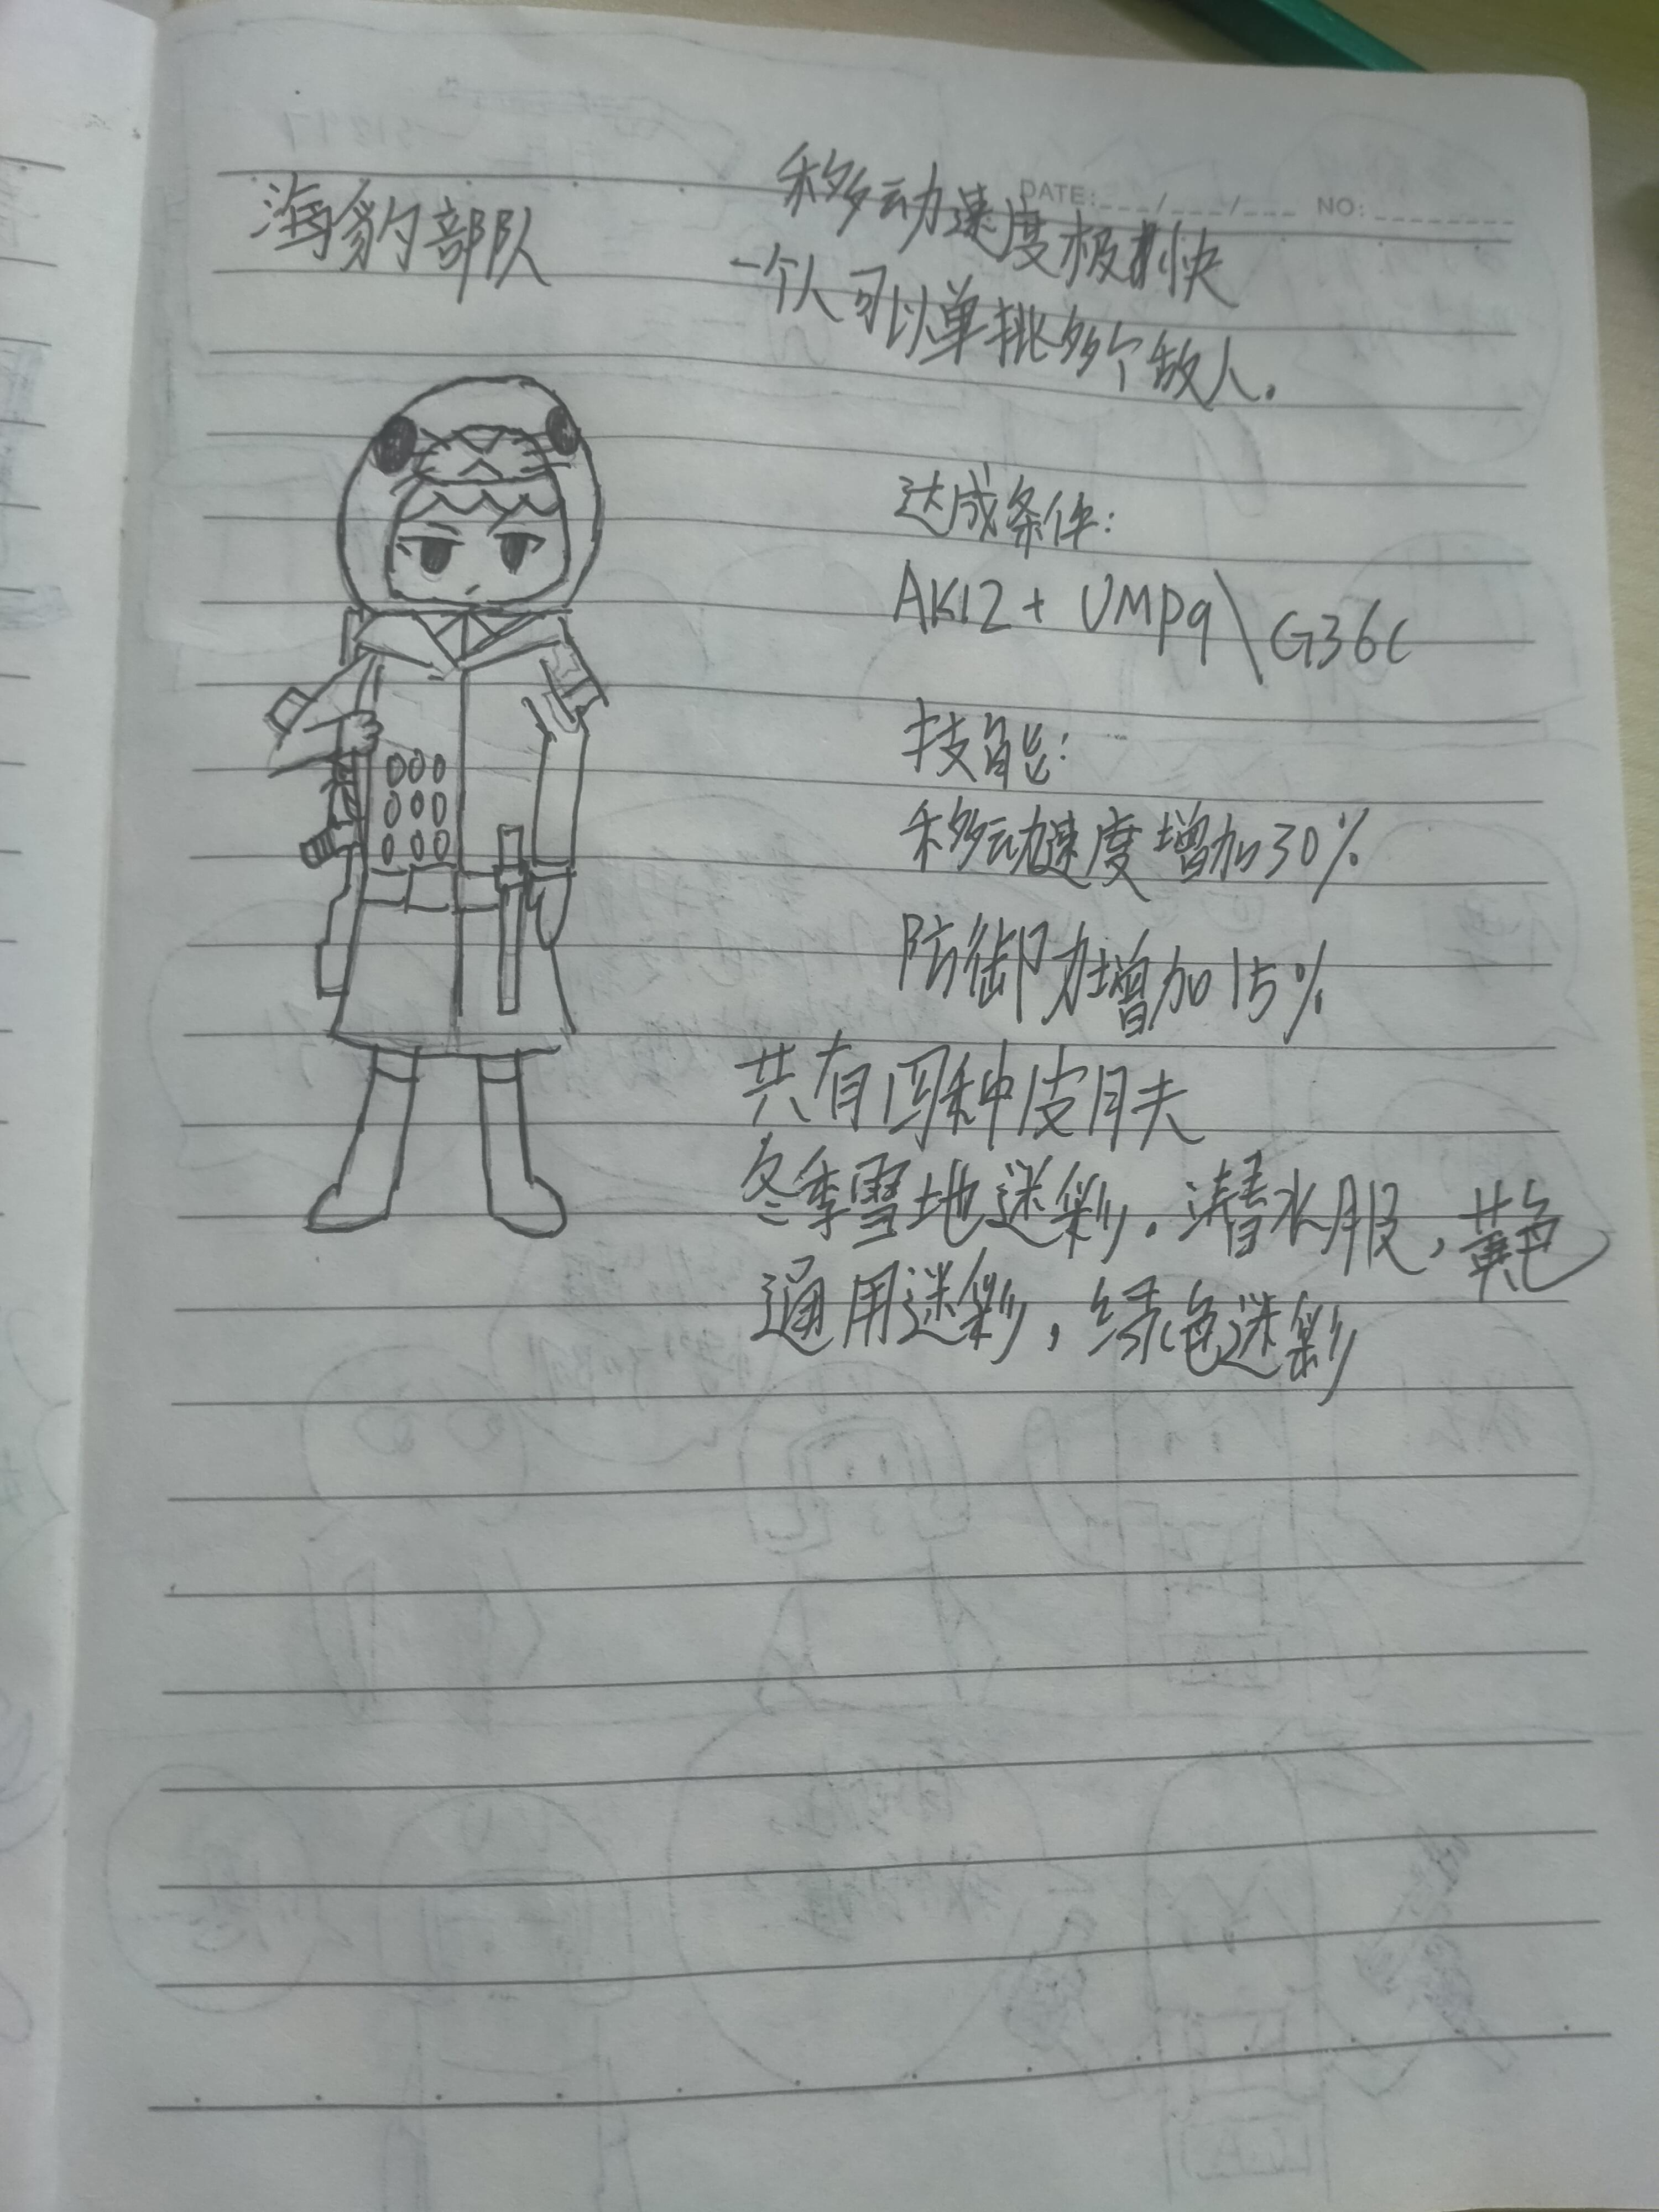 DATE:___/___/___ NO:________
海豹部队
移动速度极快
一个人可以单挑多个敌人.
达成条件:
AK12+UMP9\G36C
技能:
移动速度增加30%
防御力增加15%
共有四种皮肤
冬季雪地迷彩.潜水服,黄色
通用迷彩,绿色迷彩